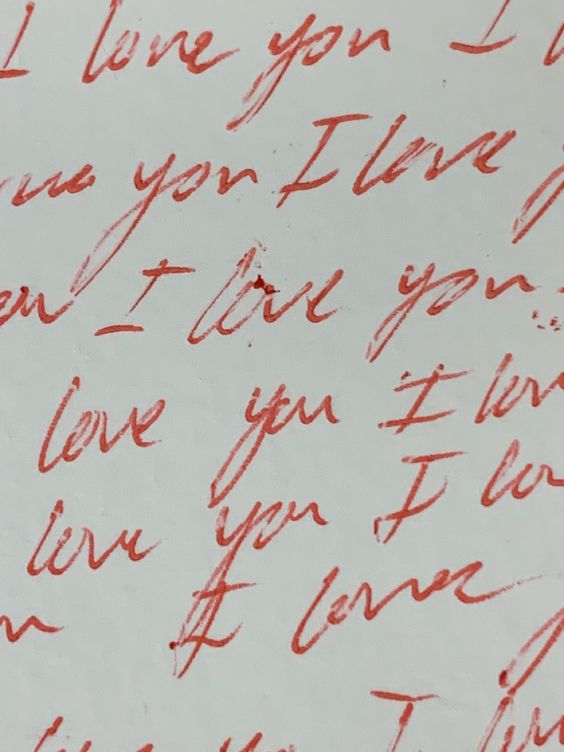 I love you I
you I love
I love you
love you I lov
love you I lo
I love
I